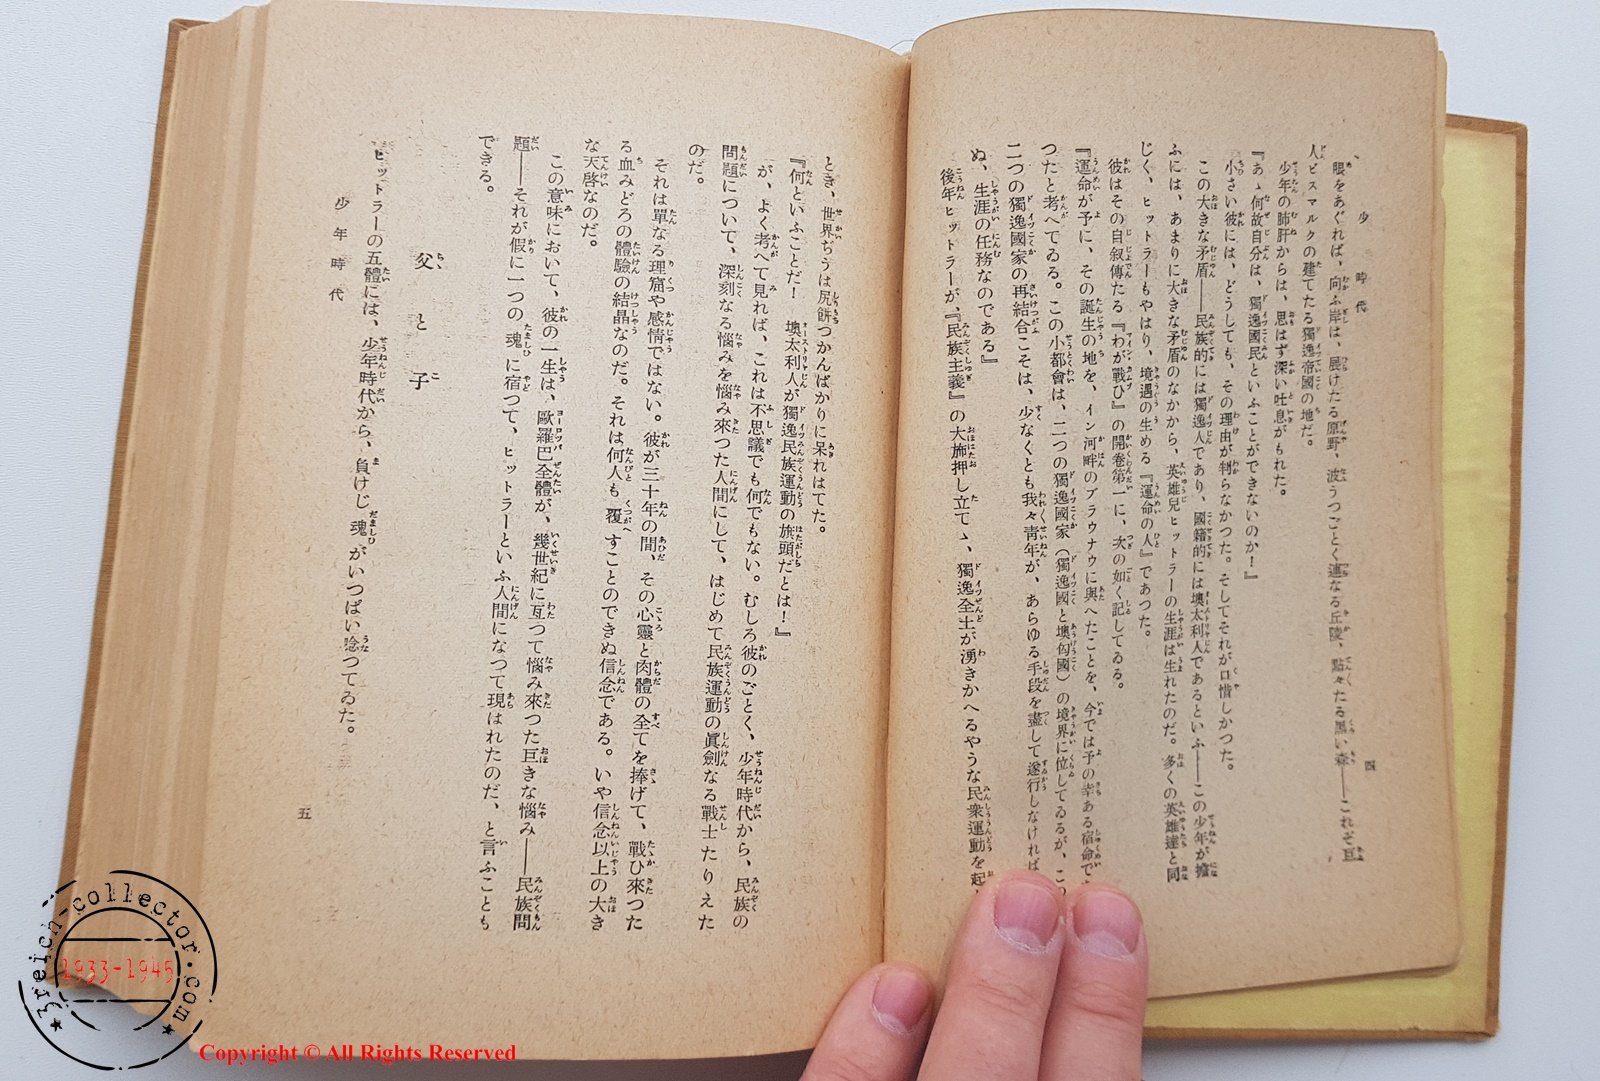 少年時代
四
眼をあぐれば、向ふ岸は、展けたる原野、波うつごとく連なる丘陵、點々たる黒い森――これぞ巨
人ビスマルクの建てたる獨逸帝國の地だ。
少年の肺肝からは、思はず深い吐息がもれた。
『あゝ何故自分は、獨逸國民といふことができないのか！』
小さい彼には、どうしても、その理由が判らなかつた。そしてそれが口惜しかつた。
この大きな矛盾――民族的には獨逸人であり、國籍的には墺太利人であるといふ――この少年が擔
ふには、あまりに大きな矛盾のなかから、英雄兒ヒットラーの生涯は生れたのだ。多くの英雄達と同
じく、ヒットラーもやはり、境遇の生める『運命の人』であつた。
彼はその自叙傳たる『わが戰ひ』の開卷第一に、次の如く記してゐる。
『運命が予に、その誕生の地を、イン河畔のブラウナウに與へたことを、今では予の幸ある宿命で
つたと考へてゐる。この小都會は、二つの獨逸國家（獨逸國と墺匈國）の境界に位してゐるが、この
二つの獨逸國家の再結合こそは、少なくとも我々靑年が、あらゆる手段を盡して遂行しなければ
ぬ、生涯の任務なのである』
後年ヒットラーが、『民族主義』の大旆押し立てゝ、獨逸全土が湧きかへるやうな民衆運動を起
とき、世界ぢうは尻餅つかんばかりに呆れはてた。
『何といふことだ！　墺太利人が獨逸民族運動の旗頭だとは！』
が、よく考へて見れば、これは不思議でも何でもない。むしろ彼のごとく、少年時代から、民族の
問題について、深刻なる惱みを惱み來つた人間にして、はじめて民族運動の眞劍なる戰士たりえた
のだ。
それは單なる理窟や感情ではない。彼が三十年の間、その心靈と肉體の全てを捧げて、戰ひ來つた
る血みどろの體驗の結晶なのだ。それは何人も覆すことのできぬ信念である。いや信念以上の大き
な天啓なのだ。
この意味において、彼の一生は、歐羅巴全體が、幾世紀に亙つて惱み來つた巨きな惱み――民族問
題――それが假に一つの魂に宿つて、ヒットラーといふ人間になつて現はれたのだ、と言ふことも
できる。
父と子
ヒットラーの五體には、少年時代から、負けじ魂がいつぱい唸つてゐた。
少年時代
五
3reich-collector.com
1933-1945
Copyright © All Rights Reserved